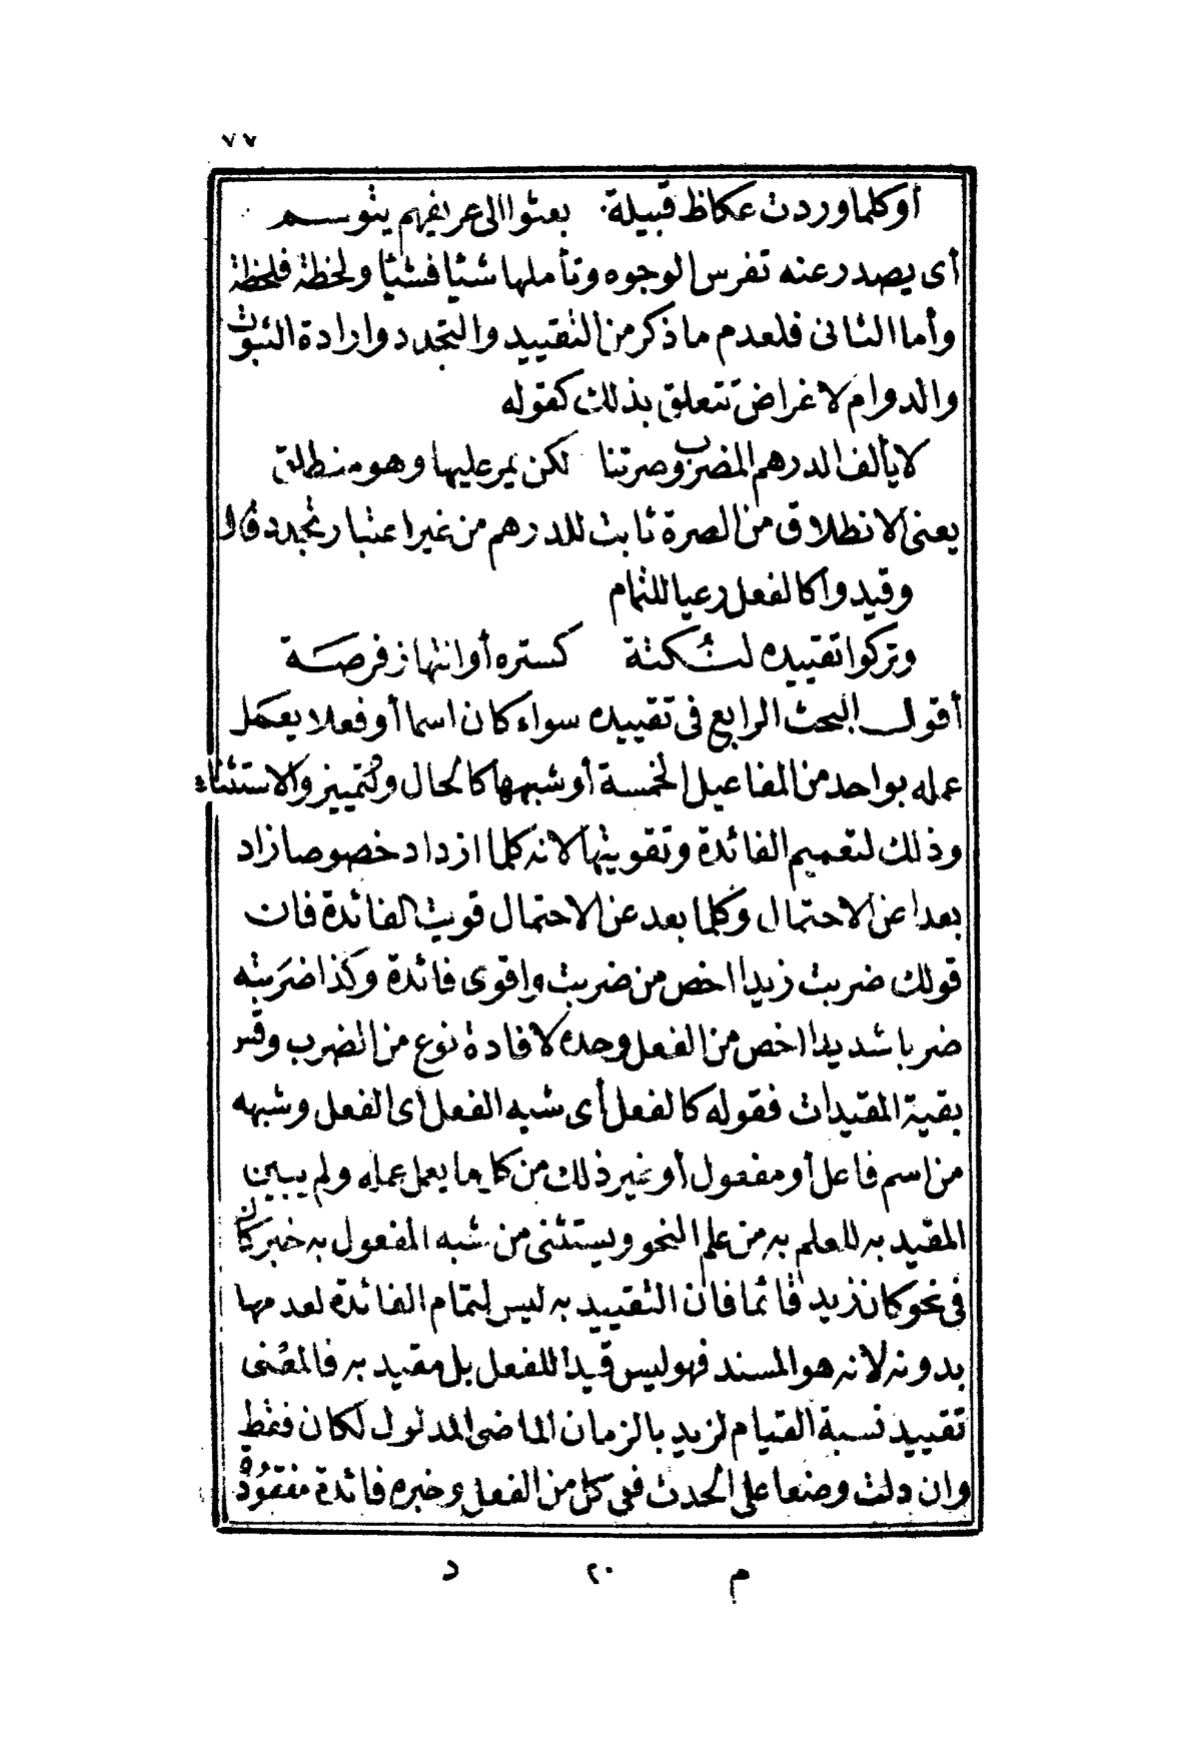 ٧٧
أوكلما وردت عكاظ قبيلة بعثوا الى عريفهم يتوسم
أى يصدر عنه تفرس الوجوه وتأملها شيًا فشيًا ولحظة فلحظة
وأما الثانى فلعدم ما ذكر من التقييد والتجدد وارادة الثبوت
والدوام لاغراض تتعلق بذلك كقوله
لا يألف الدرهم المضروب صرتنا لكن يمر عليها وهو منطلق
يعنى الانطلاق من الصرة ثابت للدرهم من غير اعتبار تجدد قال
وقيدوا كالفعل رعيا للتمام
وتركوا تقييده لنكتة كستره أو انتهاز فرصة
أقول البحث الرابع فى تقييده سواء كان اسما أو فعلا يعمل
عمله بواحد من المفاعيل الخمسة أو شبهها كالحال والتمييز والاستثناء
وذلك لتعميم الفائدة وتقويتها لانه كلما ازداد خصوصا زاد
بعدا عن الاحتمال وكلما بعد عن الاحتمال قويت الفائدة فان
قولك ضربت زيدا اخص من ضربت واقوى فائدة وكذا ضربته
ضربا شديدا اخص من الفعل وحده لافادة نوع من الضرب وقس
بقية المقيدات فقوله كالفعل أى شبه الفعل أى الفعل وشبهه
من اسم فاعل أو مفعول أو غير ذلك من كل ما يعمل عمله ولم يبين
المقيد به للعلم به من علم النحو ويستثنى من شبه المفعول به خبر كان
فى نحو كان زيد قائما فان التقييد به ليس لتمام الفائدة لعدمها
بدونه لانه هو المسند فهو ليس قيدا للفعل بل مقيد به فالمعنى
تقييد نسبة القيام لزيد بالزمان الماضى المدلول لكان فقط
وان دلت وضعا على الحدث ففى كل من الفعل وخبره فائدة مفقودة
م ٢٠ د